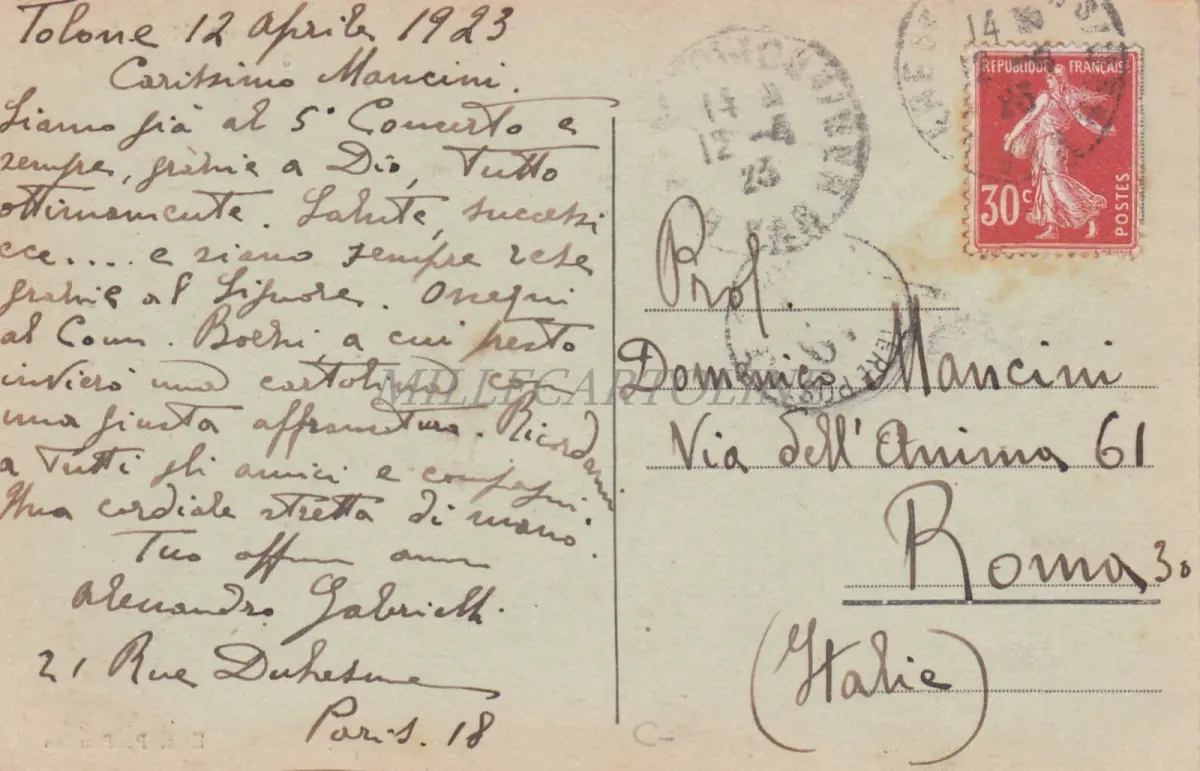 Tolone 12 Aprile 1923
Carissimo Mancini.
Siamo già al 5° Concerto e
sempre, grazie a Dio, Tutto
ottimamente. Salute, successi
ecc.... e siano sempre rese
grazie al Signore. Ossequi
al Com. Boezi, a cui presto
invierò una cartolina con
una giusta affrancatura. Ricordami
a Tutti gli amici e compagni
Una cordiale stretta di mano.
Tuo affmo
Alessandro Gabrielli.
21 Rue Duhesme
Paris. 18
REPUBLIQUE FRANÇAISE
30c
POSTES
14
12 -4
23
VAR
14
23
Prof.
Domenico Mancini
Via dell'Anima 61
Roma 30
(Italie)
MILLECARTOLINE
C-